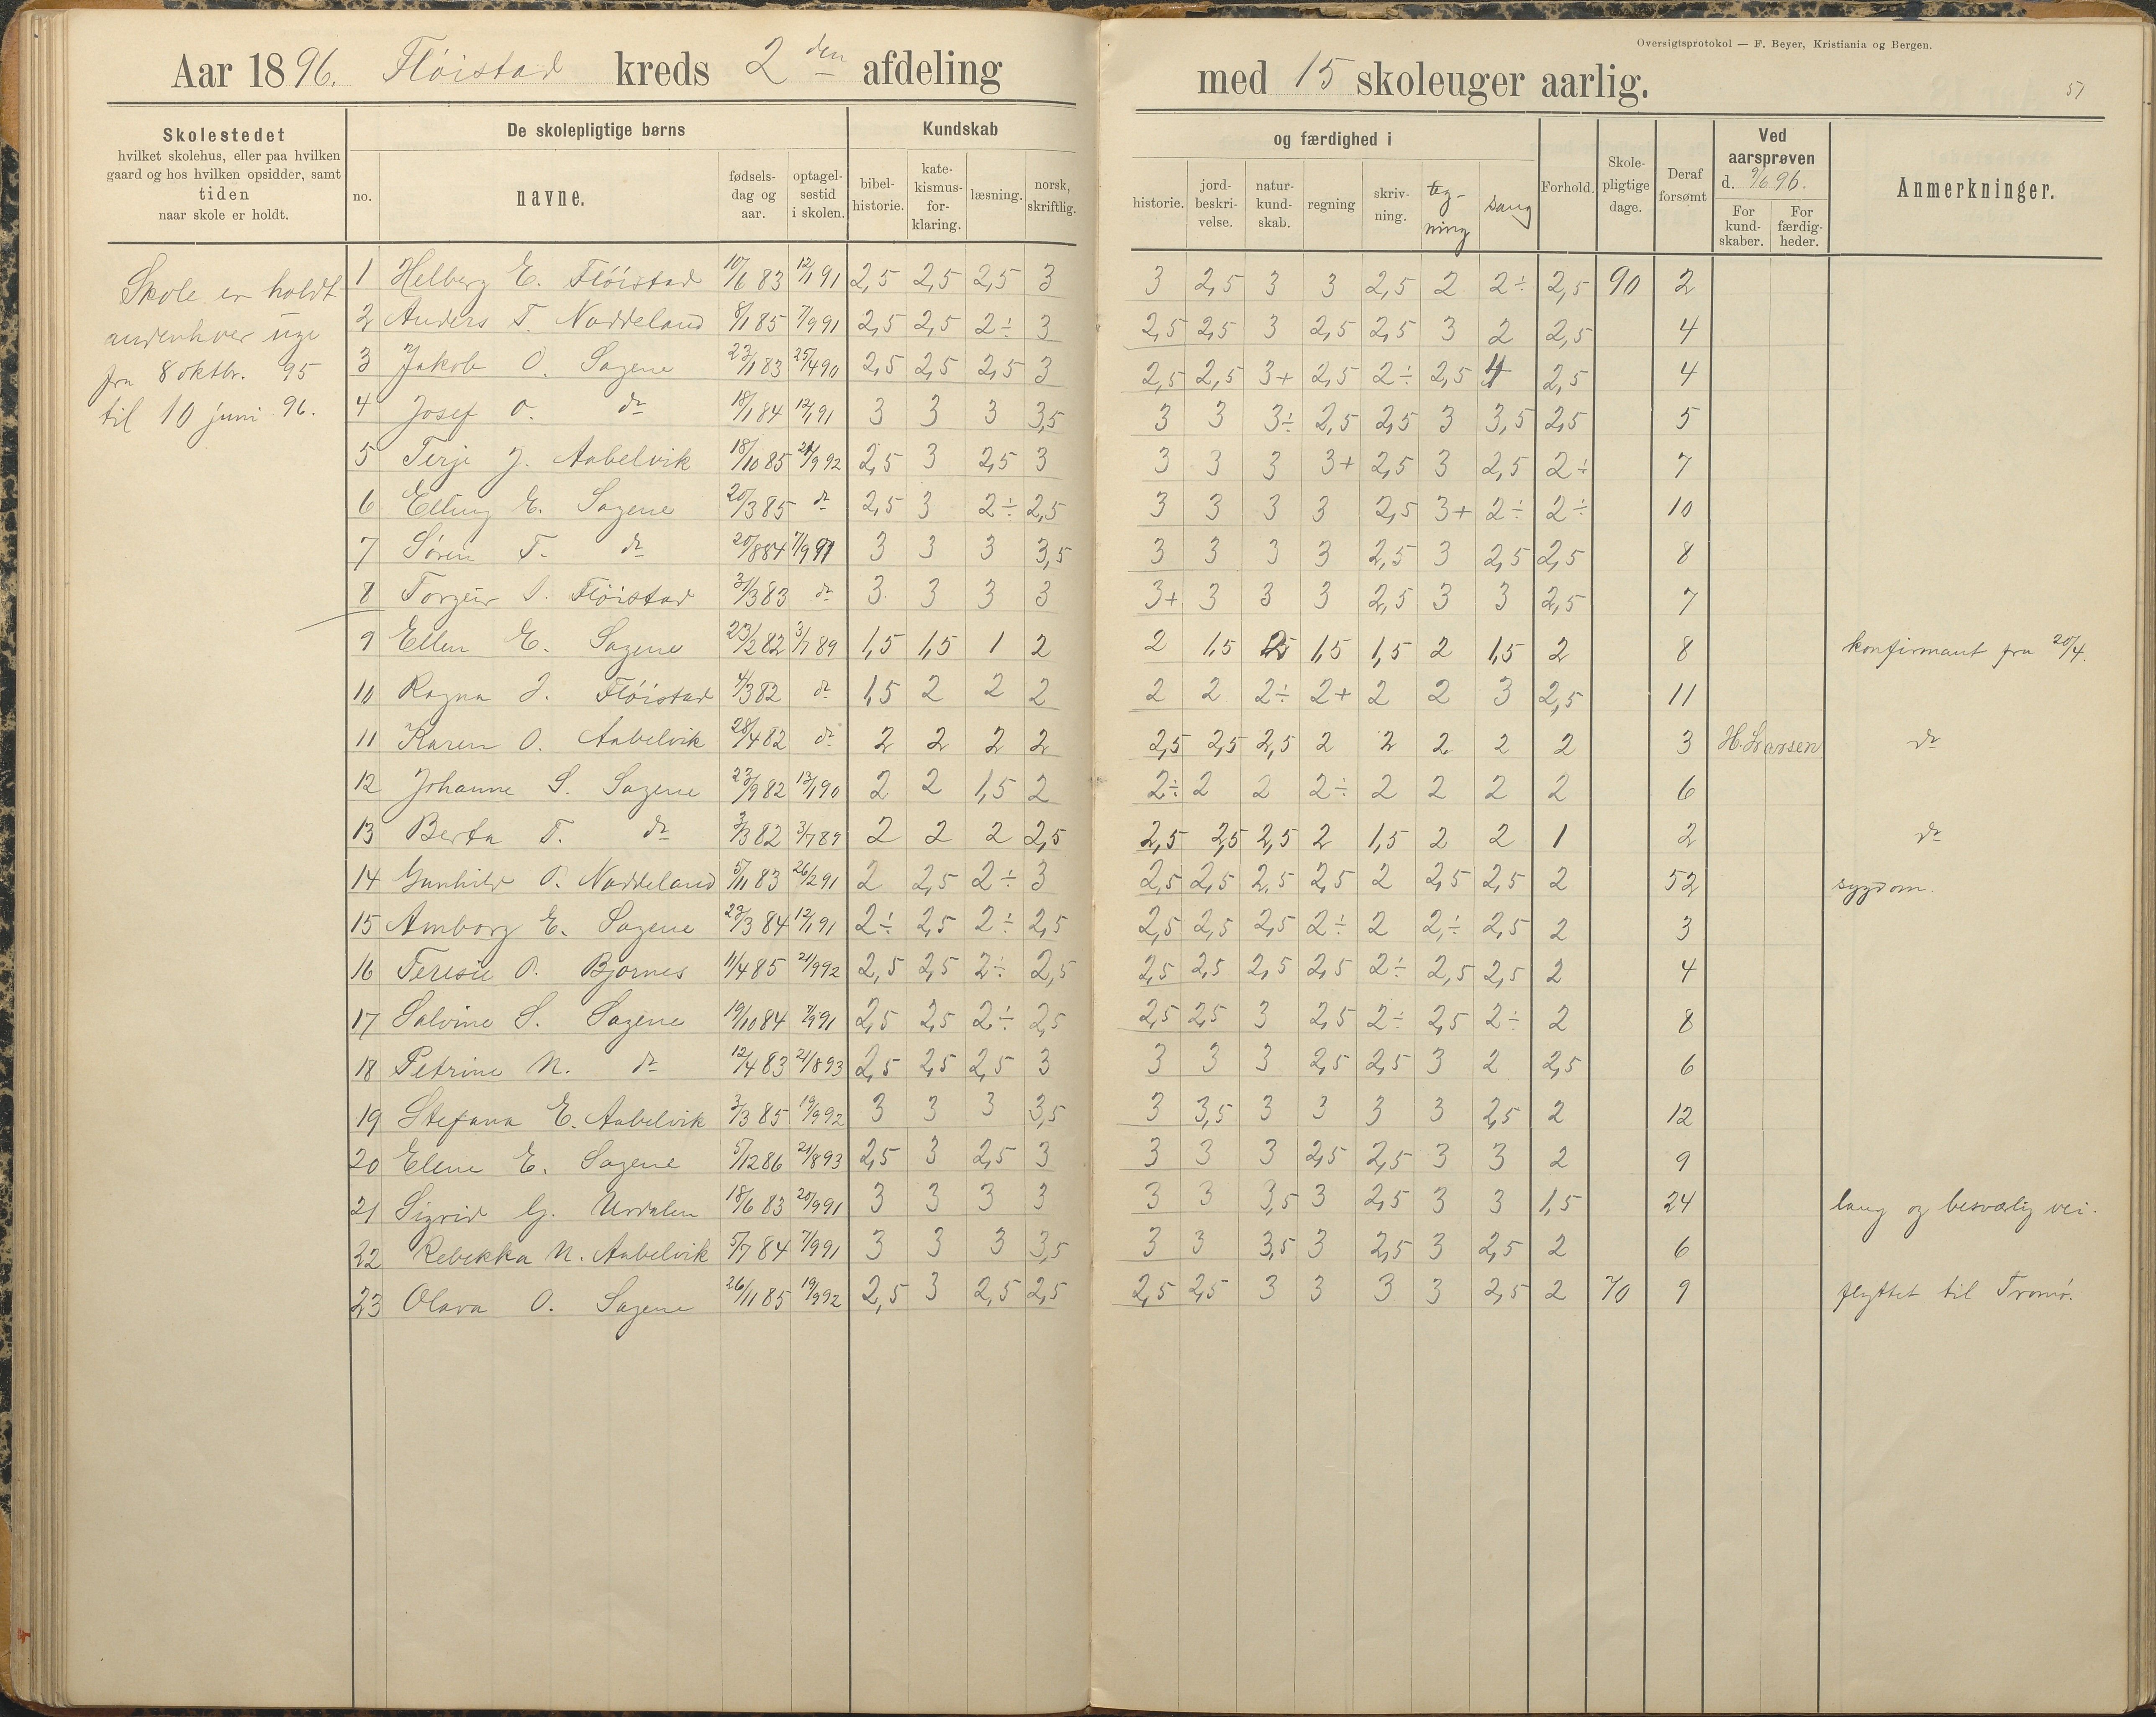 Oversigtsprotokol — F. Beyer, Kristiania og Bergen.
Aar 1896. Flöistad kreds 2den afdeling med 15 skoleuger aarlig.
57
Skolestedet
hvilket skolehus, eller paa hvilken
gaard og hos hvilken opsidder, samt
tiden
naar skole er holdt.
De skolepligtige børns
no.
navne.
fødsels-
dag og
aar.
optagel-
sestid
i skolen.
Kundskab
bibel-
historie.
kate-
kismus-
for-
klaring.
læsning.
norsk,
skriftlig.
og færdighed i
historie.
jord-
beskri-
velse.
natur-
kund-
skab.
regning
skriv-
ning.
teg-
ning
sang
Forhold.
Skole-
pligtige
dage.
Deraf
forsømt
Ved
aarsprøven
d. 9/6 96.
For
kund-
skaber.
For
færdig-
heder.
Anmerkninger.
Skole er holdt
andenhver uge
fra 8 oktbr. 95
til 10 juni 96.
1 Helberg E. Flöistad 10/6 83 12/1 91 2,5 2,5 2,5 3 3 2,5 3 3 2,5 2 2÷ 2,5 90 2
2 Anders T. Noddeland 8/1 85 7/9 91 2,5 2,5 2÷ 3 2,5 2,5 3 2,5 2,5 3 2 2,5 4
3 Jakob O. Sagene 23/1 83 25/4 90 2,5 2,5 2,5 3 2,5 2,5 3+ 2,5 2÷ 2,5 4 2,5 4
4 Josef O. do 18/1 84 12/1 91 3 3 3 3,5 3 3 3÷ 2,5 2,5 3 3,5 2,5 5
5 Terje J. Aabelvik 18/10 85 21/9 92 2,5 3 2,5 3 3 3 3 3+ 2,5 3 2,5 2÷ 7
6 Elling E. Sagene 20/3 85 do 2,5 3 2÷ 2,5 3 3 3 3 2,5 3+ 2÷ 2÷ 10
7 Sören T. do 20/8 84 7/9 91 3 3 3 3,5 3 3 3 3 2,5 3 2,5 2,5 8
8 Torgeir Flöistad 31/3 83 do 3 3 3 3 3+ 3 3 3 2,5 3 3 2,5 7
9 Ellen E. Sagene 23/2 82 3/7 89 1,5 1,5 1 2 2 1,5 1,5 1,5 2 1,5 2 8 konfirmant fra 20/4.
10 Ragna J. Flöistad 4/3 82 do 1,5 2 2 2 2 2 2÷ 2+ 2 2 3 2,5 11
11 Karen O. Aabelvik 28/4 82 do 2 2 2 2 2,5 2,5 2,5 2 2 2 2 2 3 H. Larsen do
12 Johanne S. Sagene 23/9 82 13/1 90 2 2 1,5 2 2÷ 2 2 2÷ 2 2 2 2 6
13 Berta T. do 3/3 82 3/7 89 2 2 2 2,5 2,5 2,5 2,5 2 1,5 2 2 1 2 do
14 Gunhild O. Noddeland 5/11 83 26/2 91 2 2,5 2÷ 3 2,5 2,5 2,5 2,5 2 2,5 2,5 2 52 sygdom.
15 Amborg E. Sagene 23/3 84 12/1 91 2÷ 2,5 2÷ 2,5 2,5 2,5 2,5 2÷ 2 2÷ 2,5 2 3
16 Teresie O. Bjornes 11/4 85 21/9 92 2,5 2,5 2÷ 2,5 2,5 2,5 2,5 2,5 2÷ 2,5 2,5 2 4
17 Salvine S. Sagene 19/10 84 7/9 91 2,5 2,5 2÷ 2,5 2,5 2,5 3 2,5 2÷ 2,5 2÷ 2 8
18 Petrine N. do 12/4 83 21/8 93 2,5 2,5 2,5 3 3 3 3 2,5 2,5 3 2 2,5 6
19 Stefana E. Aabelvik 3/3 85 19/9 92 3 3 3 3,5 3 3,5 3 3 3 3 2,5 2 12
20 Elene E. Sagene 5/12 86 21/8 93 2,5 3 2,5 3 3 3 3 2,5 2,5 3 3 2 9
21 Sigrid G. Urdalen 18/6 83 20/9 91 3 3 3 3 3 3 3,5 3 2,5 3 3 1,5 24 lang og besværlig vei.
22 Rebekka N. Aabelvik 5/7 84 7/9 91 3 3 3 3,5 3 3 3,5 3 2,5 3 2,5 2 6
23 Olava O. Sagene 26/11 85 19/9 92 2,5 3 2,5 2,5 2,5 2,5 3 3 3 3 2,5 2 70 9 flyttet til Tromö.